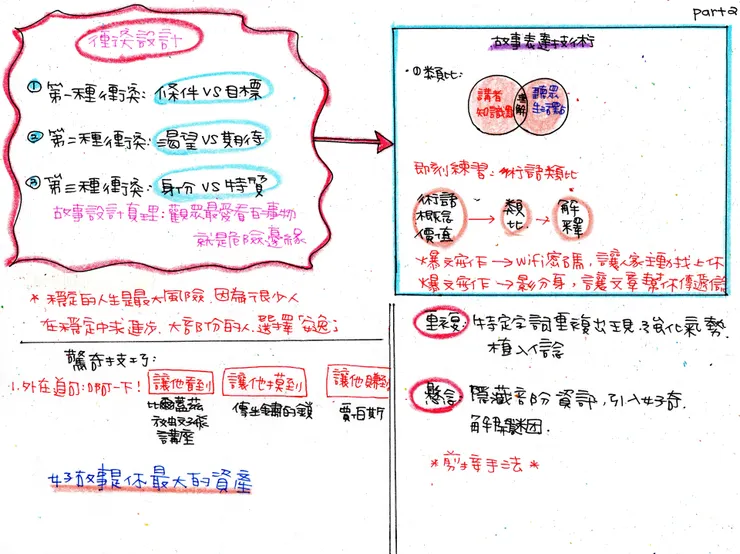 part2
衝突設計
① 第一種衝突: 條件 VS 目標
② 第二種衝突: 渴望 VS 期待
③ 第三種衝突: 身份 VS 特質
故事設計真理: 觀眾最愛看的事物
就是危險邊緣
* 穩定的人生是最大風險,因為很少人
在穩定中求進步,大部份的人選擇「安逸」
驚奇技巧:
1.外在道具:啊一下!
讓他看到
比爾蓋茲
放蚊子張
講座
讓他摸到
傳生鏽的鎖
讓他聽到
賈伯斯
好故事是你最大的資產
故事表達技術
① 類比:
講者
知識點
理解
聽眾
生活點
即刻練習: 術語類比
術語
概念
價值
類
比
解
釋
*爆文寫作 → wifi密碼,讓人家主動找上你
*爆文寫作 → 影分身,讓文章幫你傳遞信
重複: 特定字詞重複出現,強化氣勢.
植入信念
懸念: 隱藏部份資訊,引入好奇.
解開謎團.
*剪接手法*